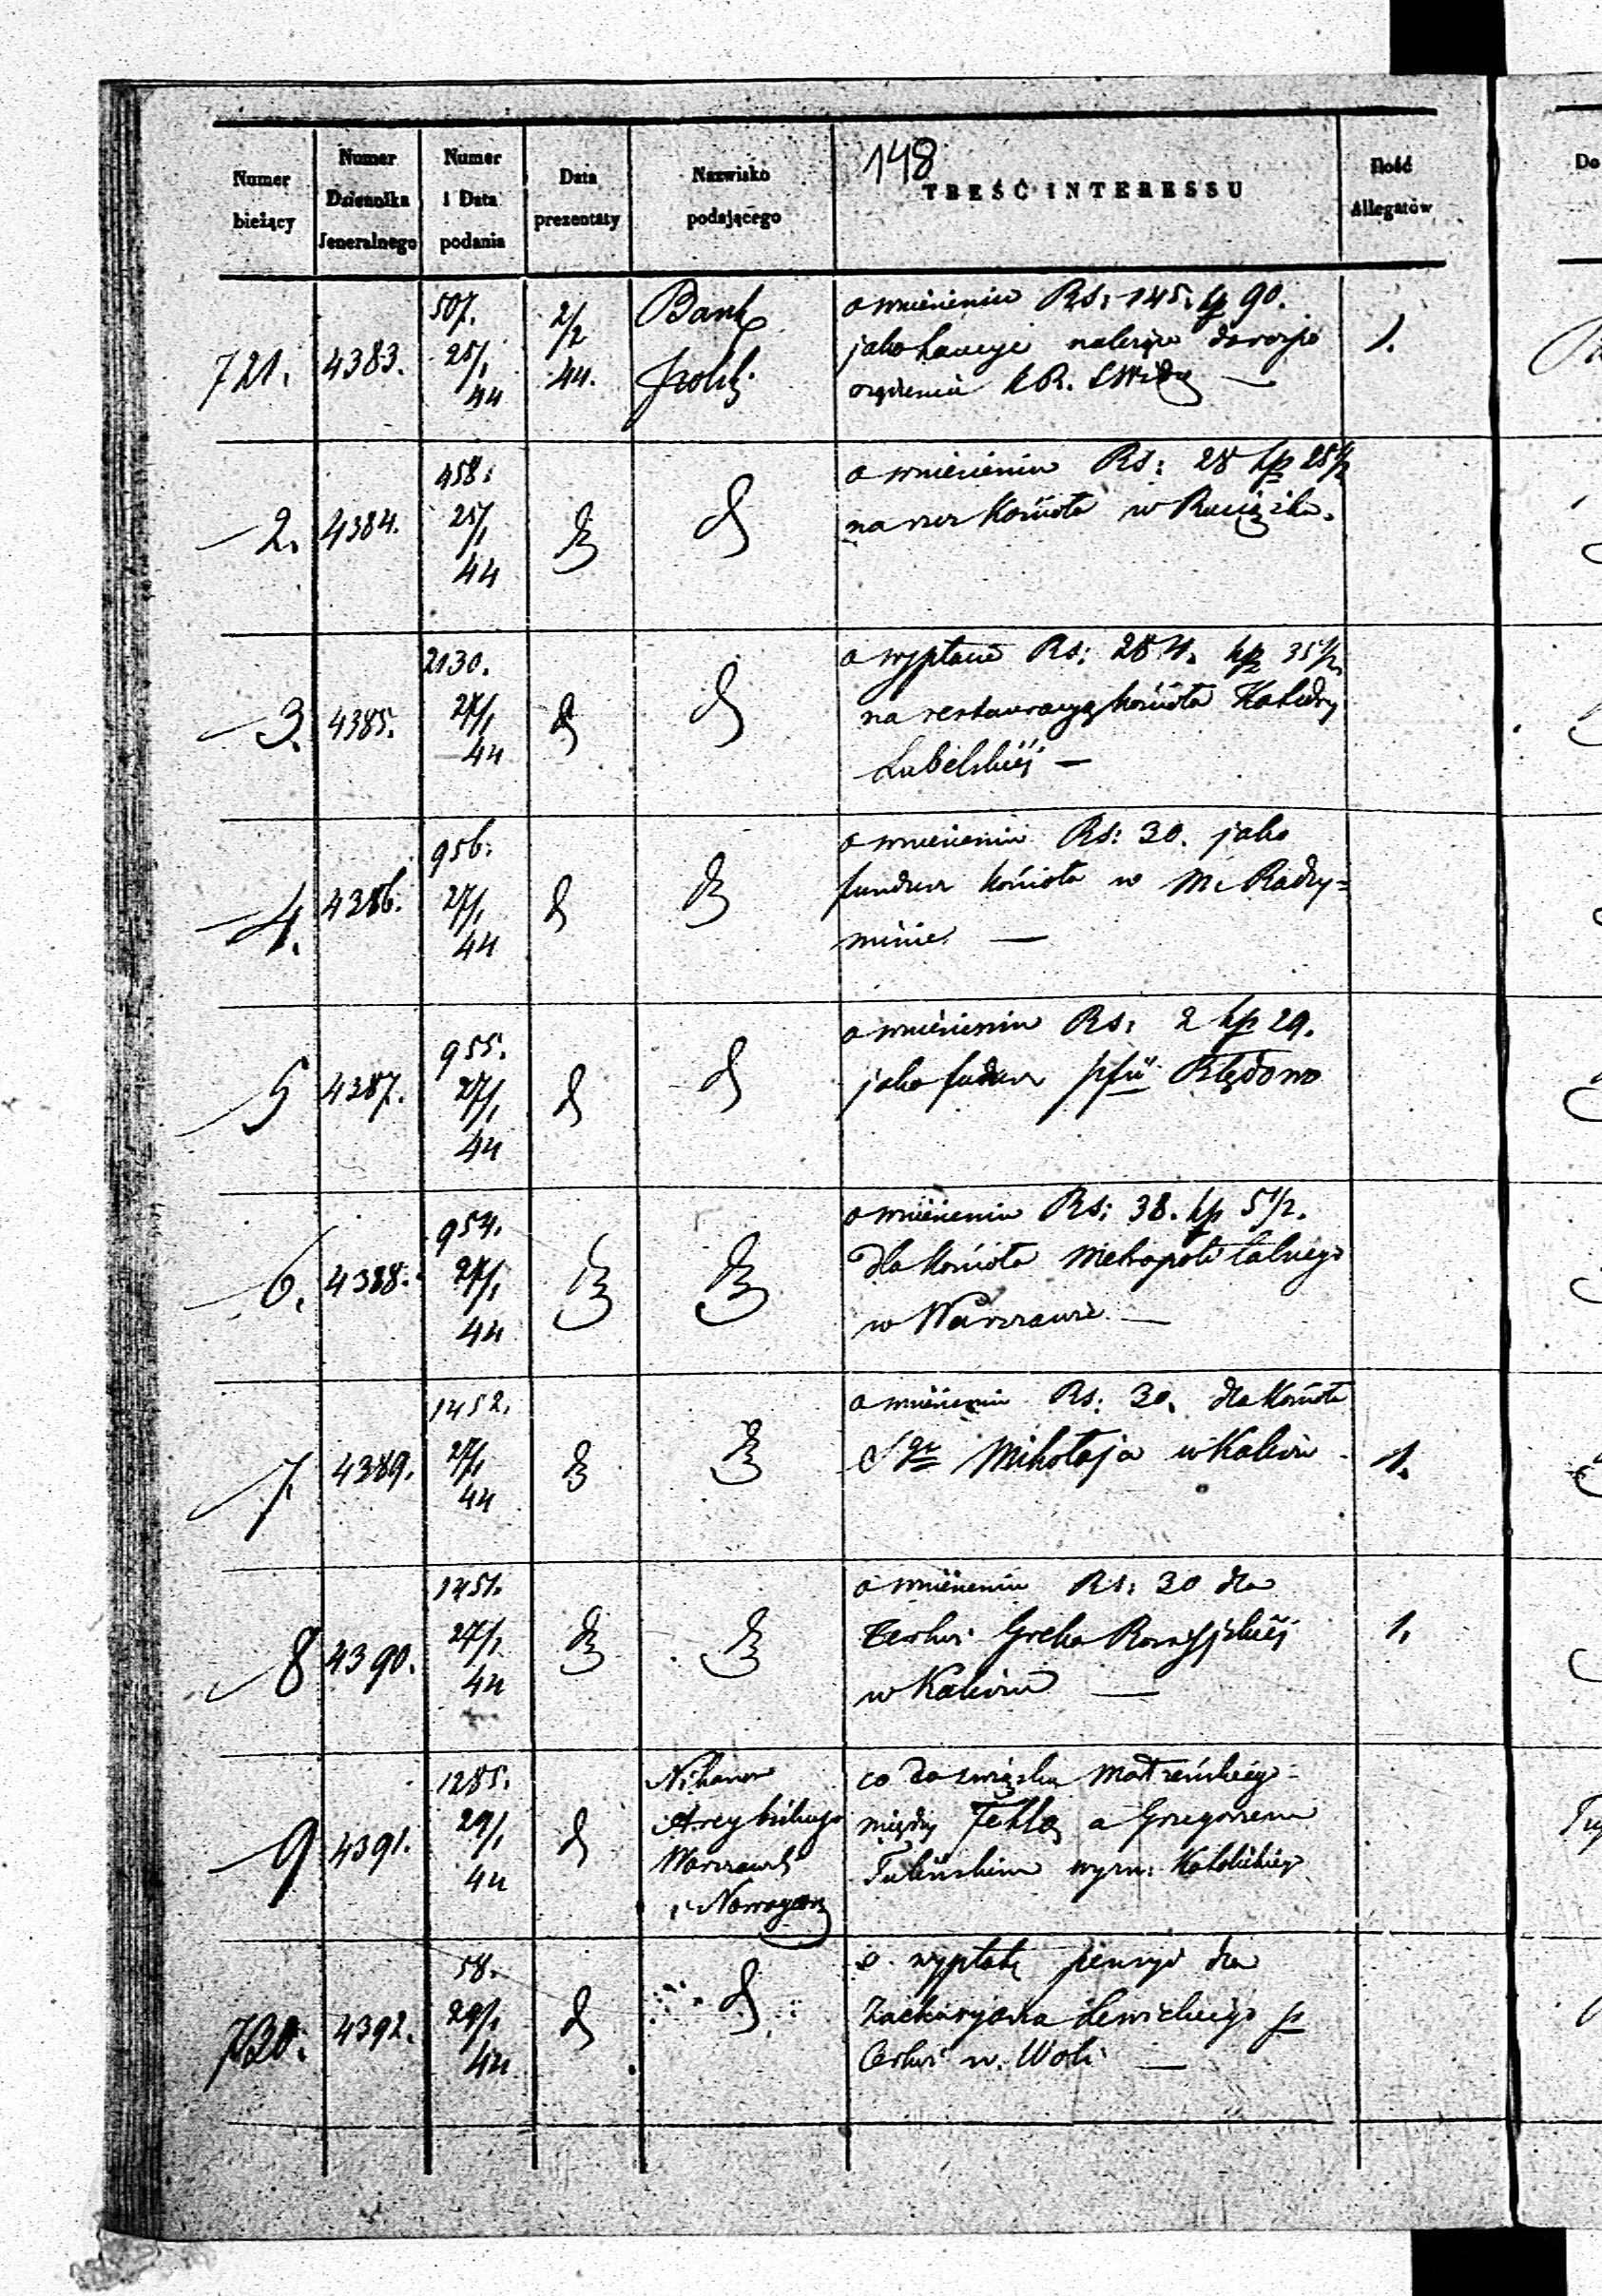 148
Numer bieżący
Numer Dziennika Jeneralnego
Numer i Data podania
Data prezentaty
Nazwisko podającego
TREŚĆ INTERESSU
Ilość Allegatów
721. 4383. 507. 25/1 44 2/2 44. Bank Polski o wniesieniu Rs: 145. kp 90. 1.
jako kaucyi należące do rozpo
rządzenia K.R.
2. 4384. 458. 25/1 44 o wniesieniu Rs: 28 kp 28½
na rzecz Kościoła w Raciążku.
3. 4385. 2130. 27/1 44 o wypłacie Rs: 284. kp 35½
na restauracyą kościoła Katedry
Lubelskiéj —
4. 4386. 956. 27/1 44 o wniesieniu Rs: 30. jako
fundusz kościoła w M. Radzy=
minie. —
5 4387. 955. 27/1 44 o wniesieniu Rs: 2 kp 29.
jako fundusz Błędowo
6. 4388. 954. 27/1 44 o wniesieniu Rs: 38. kp 5½.
dla kościoła Metropolitalnego
w Warszawie —
7. 4389. 1452. 27/1 44 o wniesieniu Rs: 30. dla kościoła 1.
Sgo Mikołaja w Kaliszu
8 4390. 1451. 27/1 44 o wniesieniu Rs: 30 dla 1.
Cerkwi Greko Rossyjskiéj
w Kaliszu —
9 4391. 1285. 29/1 44 Nikanor Arcybiskup Warszawski i Nowogeor co do związku małżeńskiego
między Teklą a Grzegorzem
wyzn: Katolickiego
730. 4392. 58. 29/1 44 o wypłatę pensyi dla
Zacharyasza Lewickiego
Cerkwi w Woli —